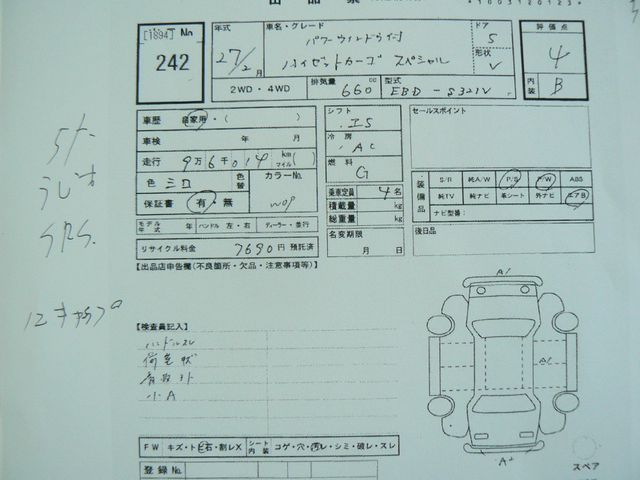 出品票
*1003120123*
[1894] No
242
年式
27/2月
車名・グレード
パワーウィンドウ付
ハイゼットカーゴ スペシャル
ドア
5
形状
V
評価点
4
内装
B
2WD・4WD
排気量 660 cc
型式 EBD - S321V
車歴 自家用・( )
車検 年 月
走行 9万6千014 km マイル( )
色 シロ 色替
カラーNo.
W09
保証書 有・無
モデル年式 年 ハンドル 左・右 ディーラー・並行
リサイクル料金 7690円 預託済
シフト
I5
冷房
AC
燃料
G
乗車定員 4名
積載量 kg
総重量 kg
名変期限
月 日
セールスポイント
装備品
S/R 純A/W P/S P/W ABS
純TV 純ナビ 革シート 外ナビ エアB
ナビ型番:
後日品
【出品店申告欄(不良箇所・欠品・注意事項等)】
ラジオ
SRS
【検査員記入】
ハンドルスレ
小A
A1
A1
FW キズ・ト ヒ石・割レX
シート内装 コゲ・穴・汚レ・シミ・破レ・スレ
登録No.
スペア